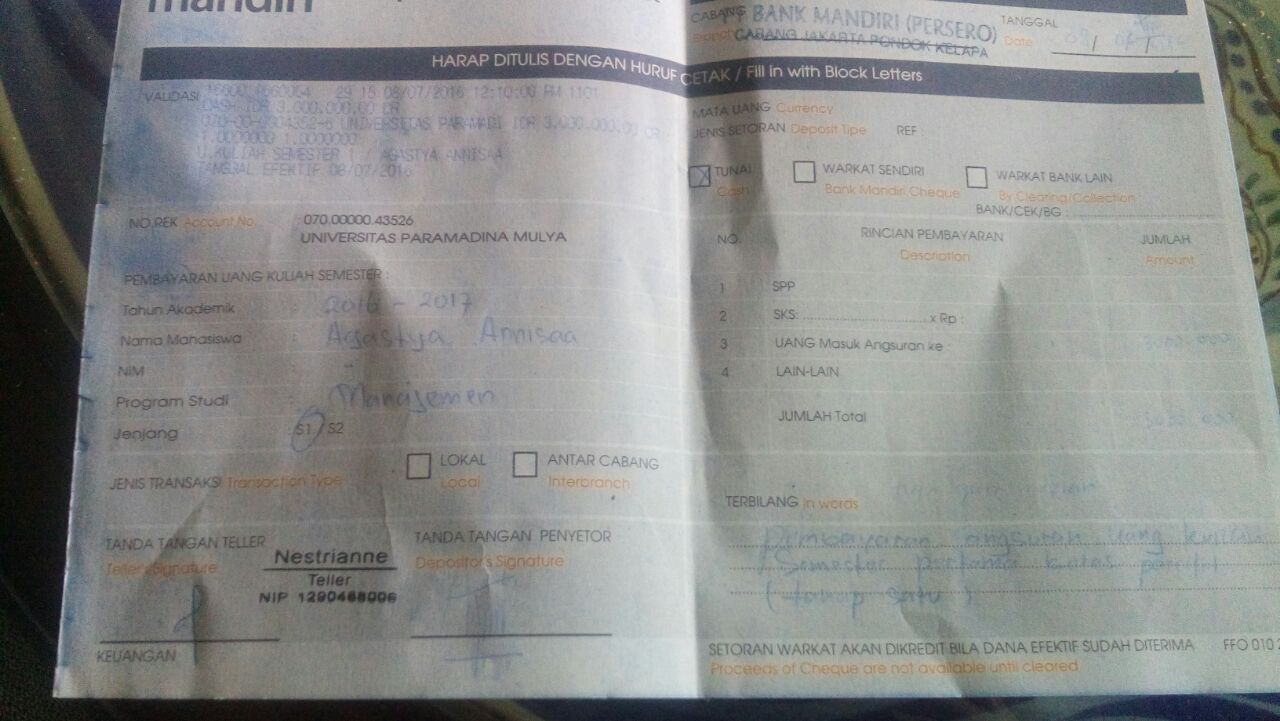 mandiri
CABANG BANK MANDIRI (PERSERO)
CABANG JAKARTA PONDOK KELAPA
TANGGAL
Date
HARAP DITULIS DENGAN HURUF CETAK / Fill in with Block Letters
VALIDASI 29 15 08/07/2016 12:10:00 PM 1101
CASH IDR 3.000.000,00 CR
070-00-0004352-6 UNIVERSITAS PARAMADI IDR 3.000.000,00 CR
1.0000000 1.0000000
U.KULIAH SEMESTER 1 / AGASTYA ANNISAA
TANGGAL EFEKTIF 08/07/2016
NO.REK Account No. : 070.00000.43526
UNIVERSITAS PARAMADINA MULYA
PEMBAYARAN UANG KULIAH SEMESTER :
Tahun Akademik : 2016 - 2017
Nama Mahasiswa : Agastya Annisaa
NIM : -
Program Studi : Manajemen
Jenjang : S1/ S2
JENIS TRANSAKSI Transaction Type
LOKAL
Local
ANTAR CABANG
Interbranch
TANDA TANGAN TELLER
Teller's Signature
Nestrianne
Teller
NIP 1290468006
TANDA TANGAN PENYETOR
Depositor's Signature
KEUANGAN
MATA UANG Currency
JENIS SETORAN Deposit Tipe REF :
TUNAI
Cash
WARKAT SENDIRI
Bank Mandiri Cheque
WARKAT BANK LAIN
By Clearing/Collection
BANK/CEK/BG :
NO. RINCIAN PEMBAYARAN JUMLAH
Description Amount
1 SPP
2 SKS: x Rp :
3 UANG Masuk Angsuran ke 3000.000
4 LAIN-LAIN
JUMLAH Total 3000.000
TERBILANG in words
Pembayaran angsuran uang kuliah
Semester pertama kelas
(tahap satu)
SETORAN WARKAT AKAN DIKREDIT BILA DANA EFEKTIF SUDAH DITERIMA FFO 010
Proceeds of Cheque are not available until cleared